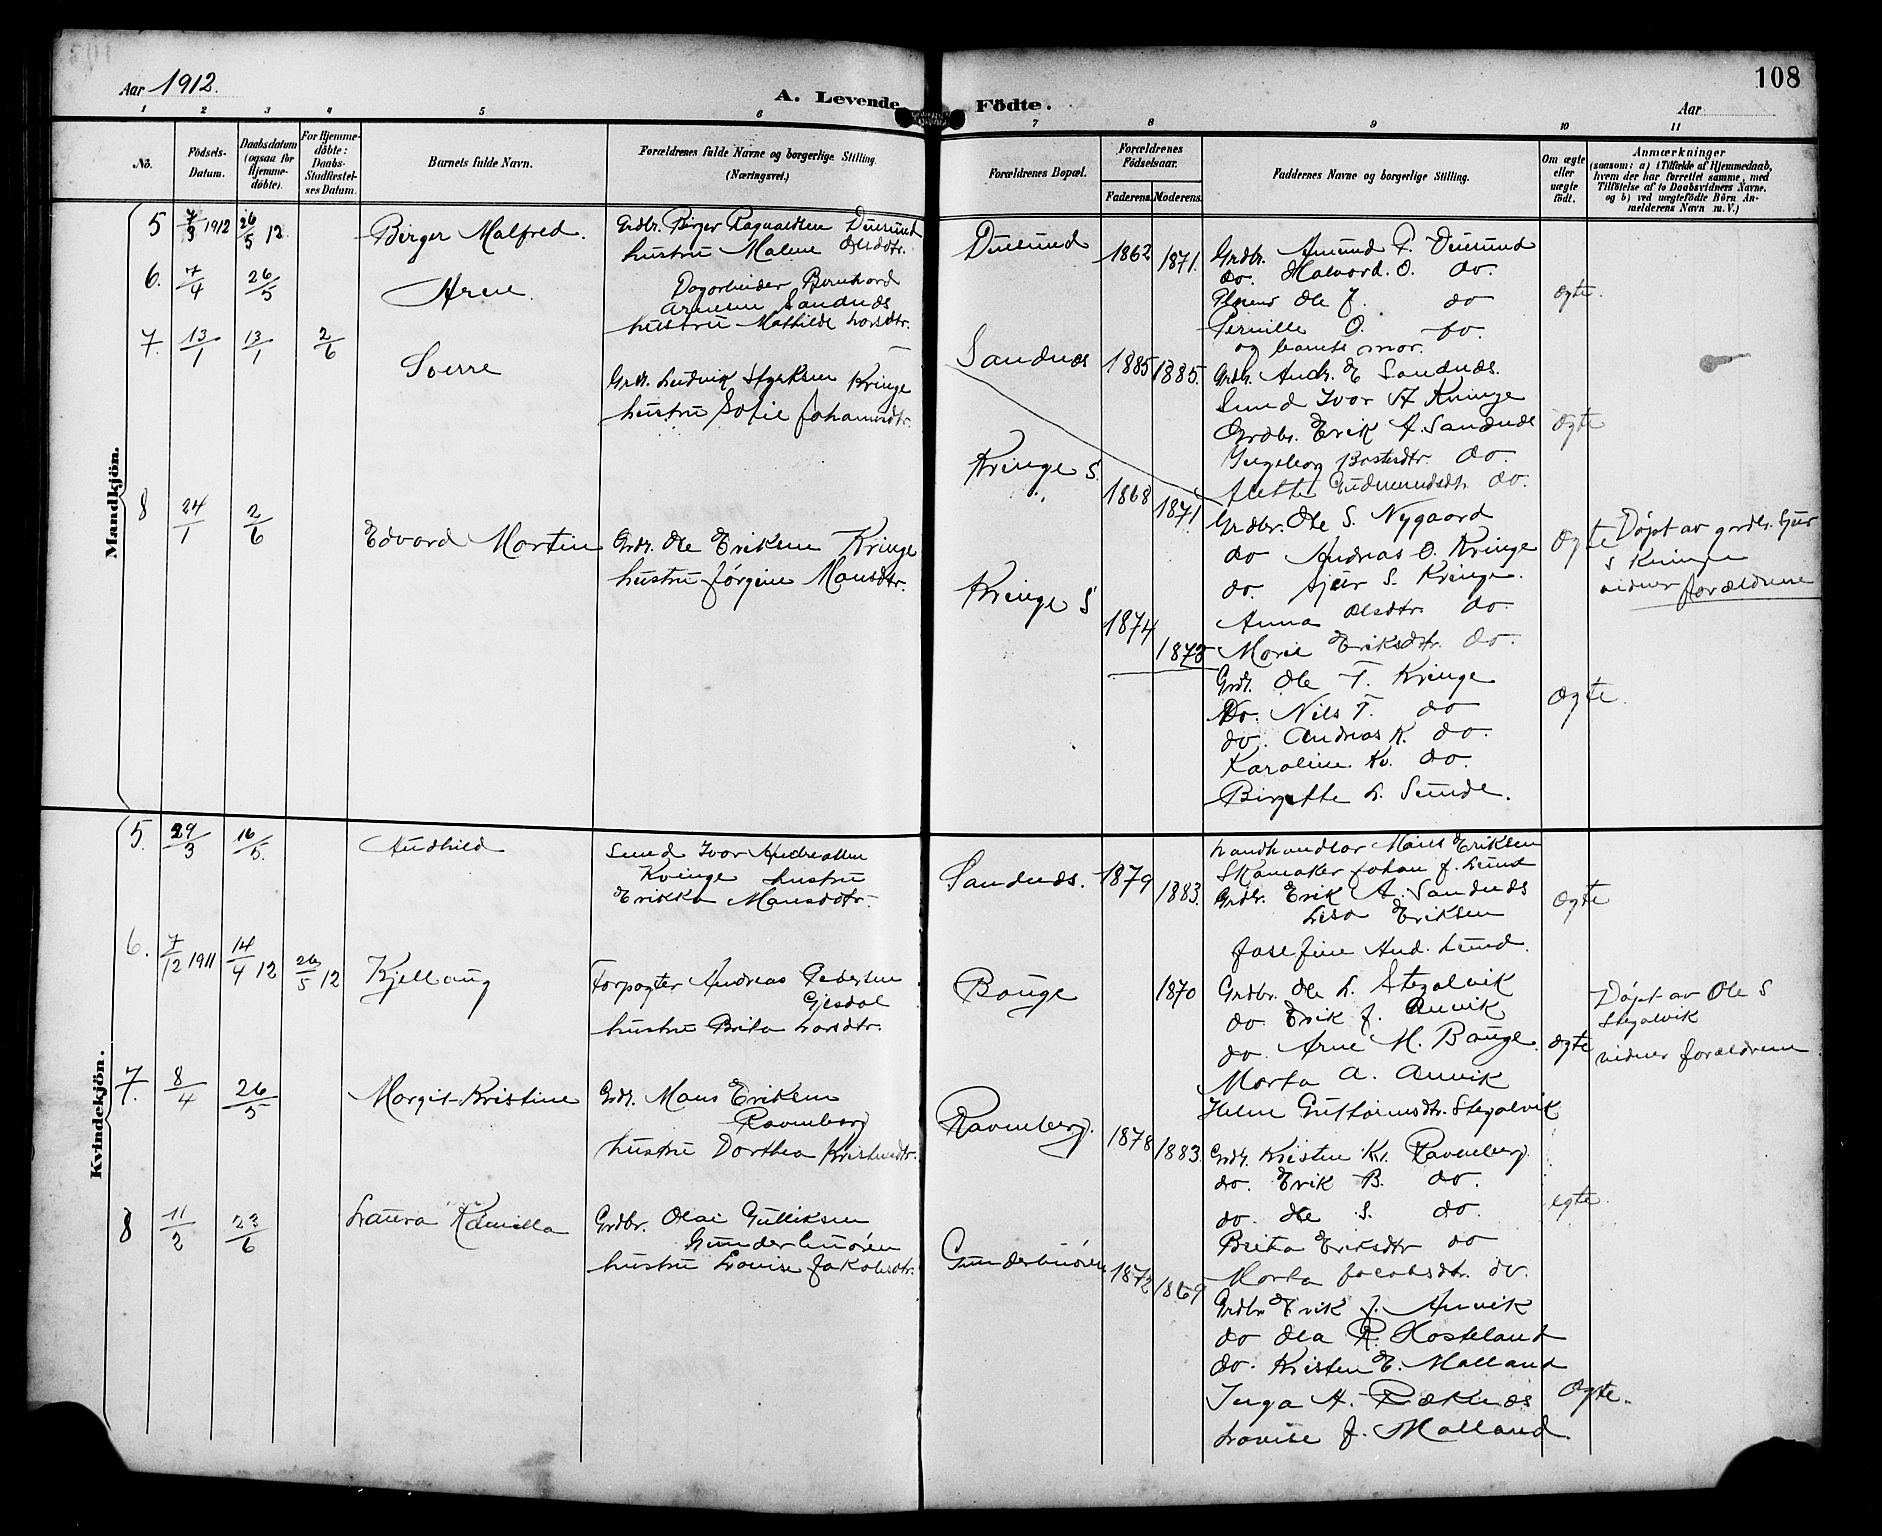 Aar 1912.
A. Levende
Födte.
Aar
108
1 2 3 4 5 6 7 8 9 10 11
No.
Födsels-
Datum.
Daabsdatum
(ogsaa for
Hjemme-
döbte).
For Hjemme-
döbte:
Daabs-
Stadfæstel-
ses Datum.
Barnets fulde Navn.
Forældrenes fulde Navne og borgerlige Stilling.
(Næringsvei.)
Forældrenes Bopæl.
Forældrenes
Födselsaar.
Faderens.
Moderens.
Faddernes Navne og borgerlige Stilling.
Om ægte
eller
uægte
födt.
Anmærkninger
(saasom: a) i Tilfælde af Hjemmedaab,
hvem der har forrettet samme, med
Tilföielse af to Daabsvidners Navne,
og b) ved uægtefödte Börn An-
melderens Navn m. V.)
Mandkjön.
5 7/3 1912 26/5 12
Birger Malfred.
Grdbr. Birger Ragnaldsen Duesund
hustru Malene Olsdtr.
Duesund
1862
1871.
Grdbr. Amund P. Duesund
do. Halvard. O. do.
Ole J. do
Pernille O. do.
og barnets mor.
ægte.
6. 7/4 26/5
Arne.
Dagarbeider Bernhard
Arnesen Sandnes
hustru Mathilde Larsdtr.
Sandnes
1885
1885.
Grdb. Andr. E Sandnes.
Smed Ivar A Kvinge
Grdbr. Erik A. Sandnes
Ingeborg do.
Jette Gudmundsdtr. do.
ægte
7. 13/1 13/1 2/6
Sverre
Grdb. Ludvik Styrksen Kvinge
hustru Sofie Johannesdtr.
Kvinge S.
1868
1871
Grdbr. Ole S. Nygaard
do Andreas O. Kvinge
do. Sjur S. Kvinge.
Anna Olsdtr. do.
Marie Eriksdtr. do.
ægte
Döpt av grdbr. Sjur
S Kvinge
vidner forældrene
8 24/1 2/6
Edvard Martin
Grdb. Ole Eriksen Kvinge
hustru Jørgine Mansdtr.
Kvinge S
1874
1873
Grdb. Ole T. Kvinge
Do. Nils T. do
do. Andreas K. do.
Karoline Kr. do.
Birgitte L. Sunde.
ægte.
Kvindekjön.
5. 29/3 16/5.
Audhild
Smed Ivar Andreassen
Kvinge hustru
Erikka Mansdtr.
Sandnes.
1879
1883.
Landhandlar Mons Eriksen
Skomaker Johan J. Lund
Grdbr. Erik A. Sandnes
Lisa Eriksen
Josefine And. Lund.
ægte
6. 7/12 1911 14/4 12 26/5 12
Kjellaug
Forpagter Andreas Pedersen
Gjesdal
hustru Brita Larsdtr.
Bauge
1870
Grdbr. Ole L. Stegalvik
do. Erik J. Anvik
do. Arne M. Bauge.
Marta A. Anvik
Guttormsdtr. Stegalvik
ægte
Döpt av Ole S
Stegalvik
vidner forældrene.
7. 8/4 26/5
Margit Kristine
Grdb. Mons Eriksen
Ravnberg
hustru Dorthea Kristensdtr.
Ravnberg.
1878
1883.
Grdb. Kristen Kr. Ravnberg
do. Erik B. do.
do. Ole S. do.
Brita Eriksdtr do
Marta Jacobsdtr. do.
ægte.
8 11/2 23/6
Laura Kamilla
Grdbr. Olai Gulliksen
hustru Lovise Jakobsdtr.
1872
1869
Grdbr Erik J. Anvik
do Ola R. Hosteland
do. Kristen E. Matland
Inga A. Ræknes
Lovise J. Matland.
ægte.